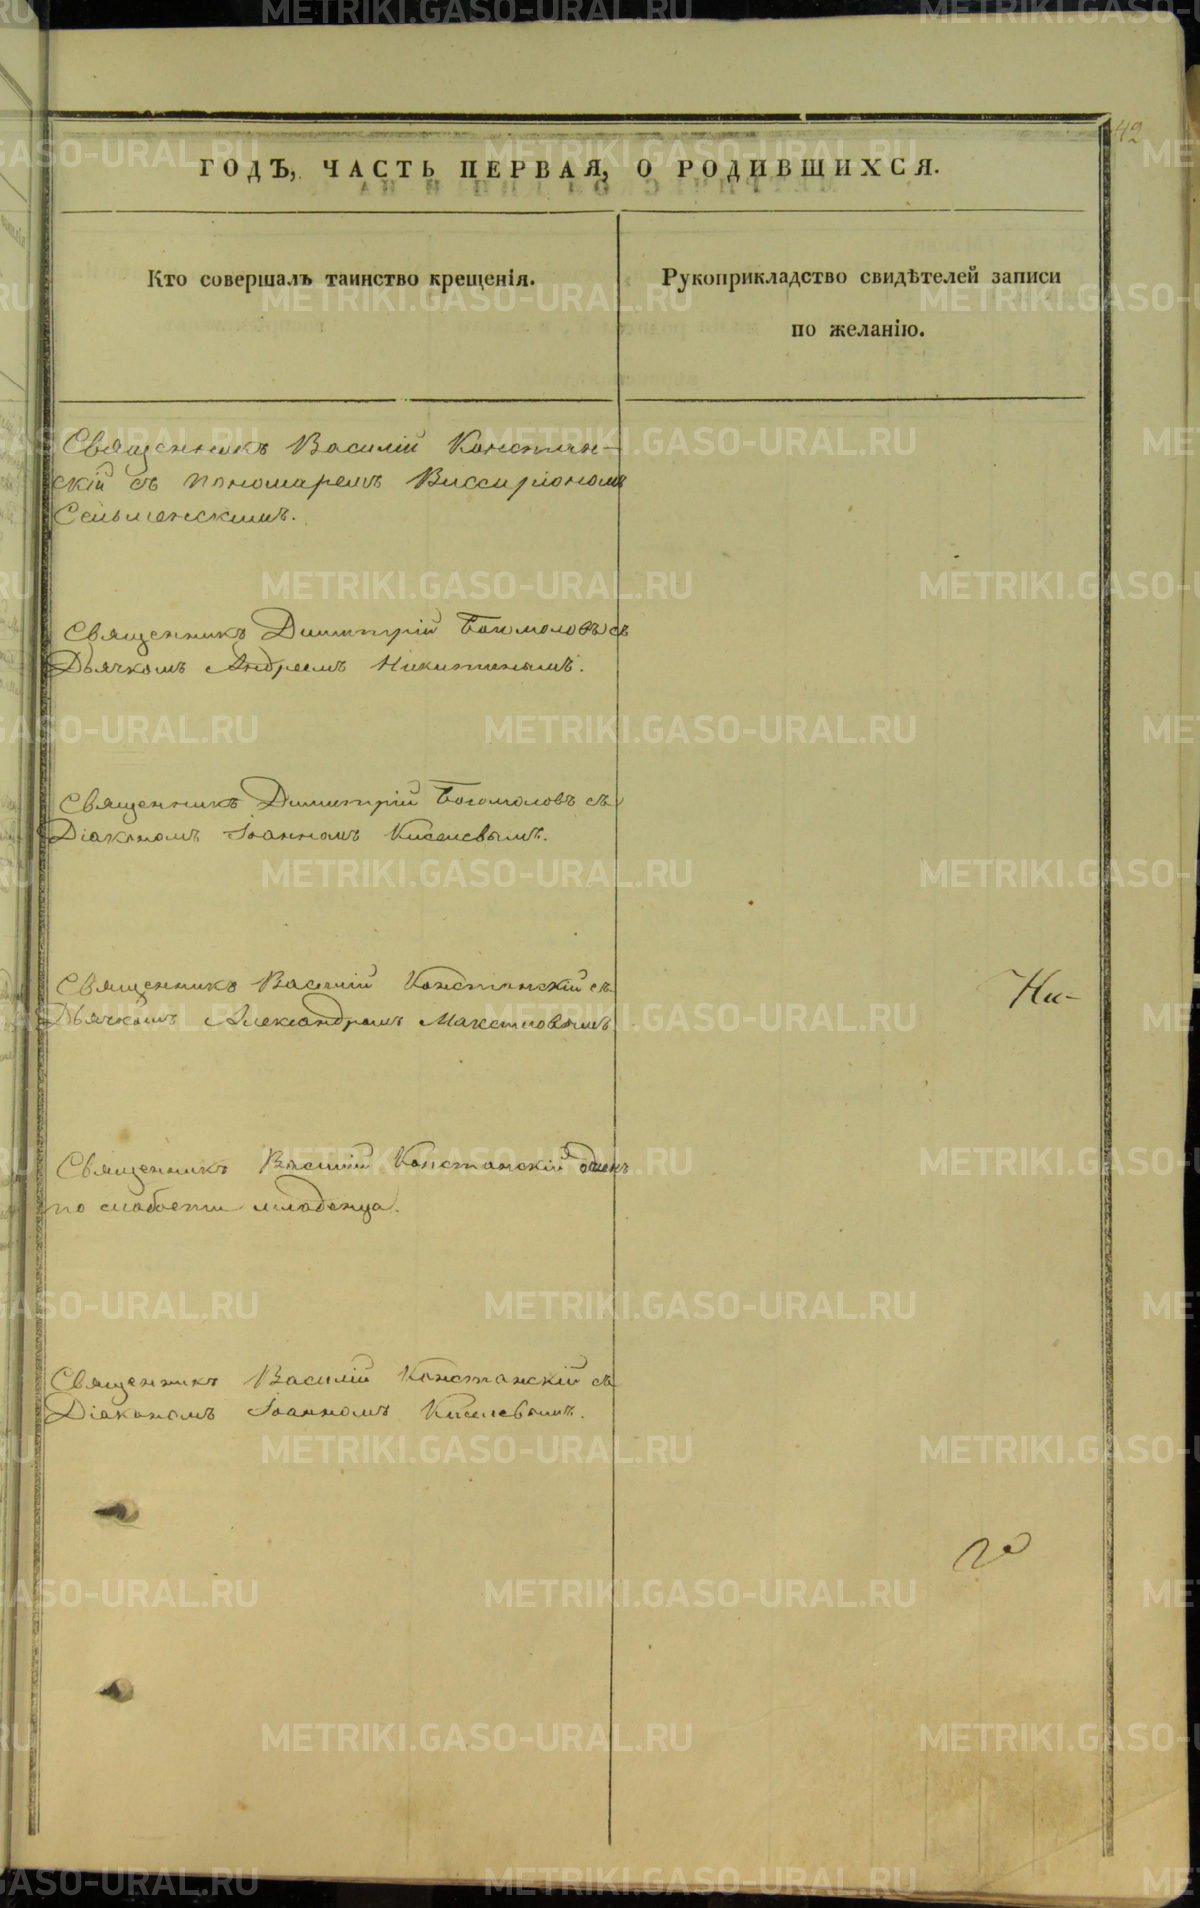 42
ГОДЪ, ЧАСТЬ ПЕРВАЯ, О РОДИВШИХСЯ.
Кто совершалъ таинство крещенія.
Рукоприкладство свидѣтелей записи
по желанію.
Священникъ Василій Констан-
скій съ пономаремъ Виссаріономъ
Сельменскимъ.
Священникъ Димитрій Богомоловъ съ
Дьячкомъ Андреемъ Никитинымъ.
Священникъ Димитрій Богомоловъ съ
Діакономъ Іоанномъ Киселевымъ.
Священникъ Василій Констанскій съ
Дьячкомъ Александромъ Макситовымъ
Ни-
Священникъ Василій Констанскій одинъ
по слабости младенца.
Священникъ Василій Констанскій съ
Діакономъ Іоанномъ Киселевымъ.
METRIKI.GASO-URAL.RU